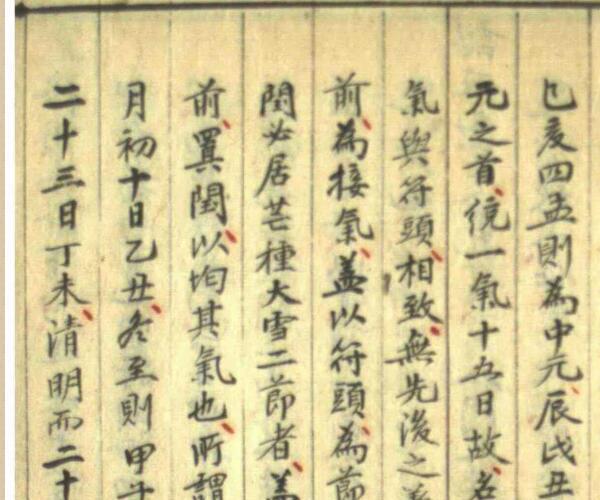 巳亥四孟則為中元辰戌丑
元之首統一氣十五日故
氣與符頭相致無先後之
前為接氣蓋以符頭為節
閏必居芒種大雪二節者蓋
前置閏以均其氣也所謂
月初十日乙丑冬至則甲
二十三日丁未清明而二十